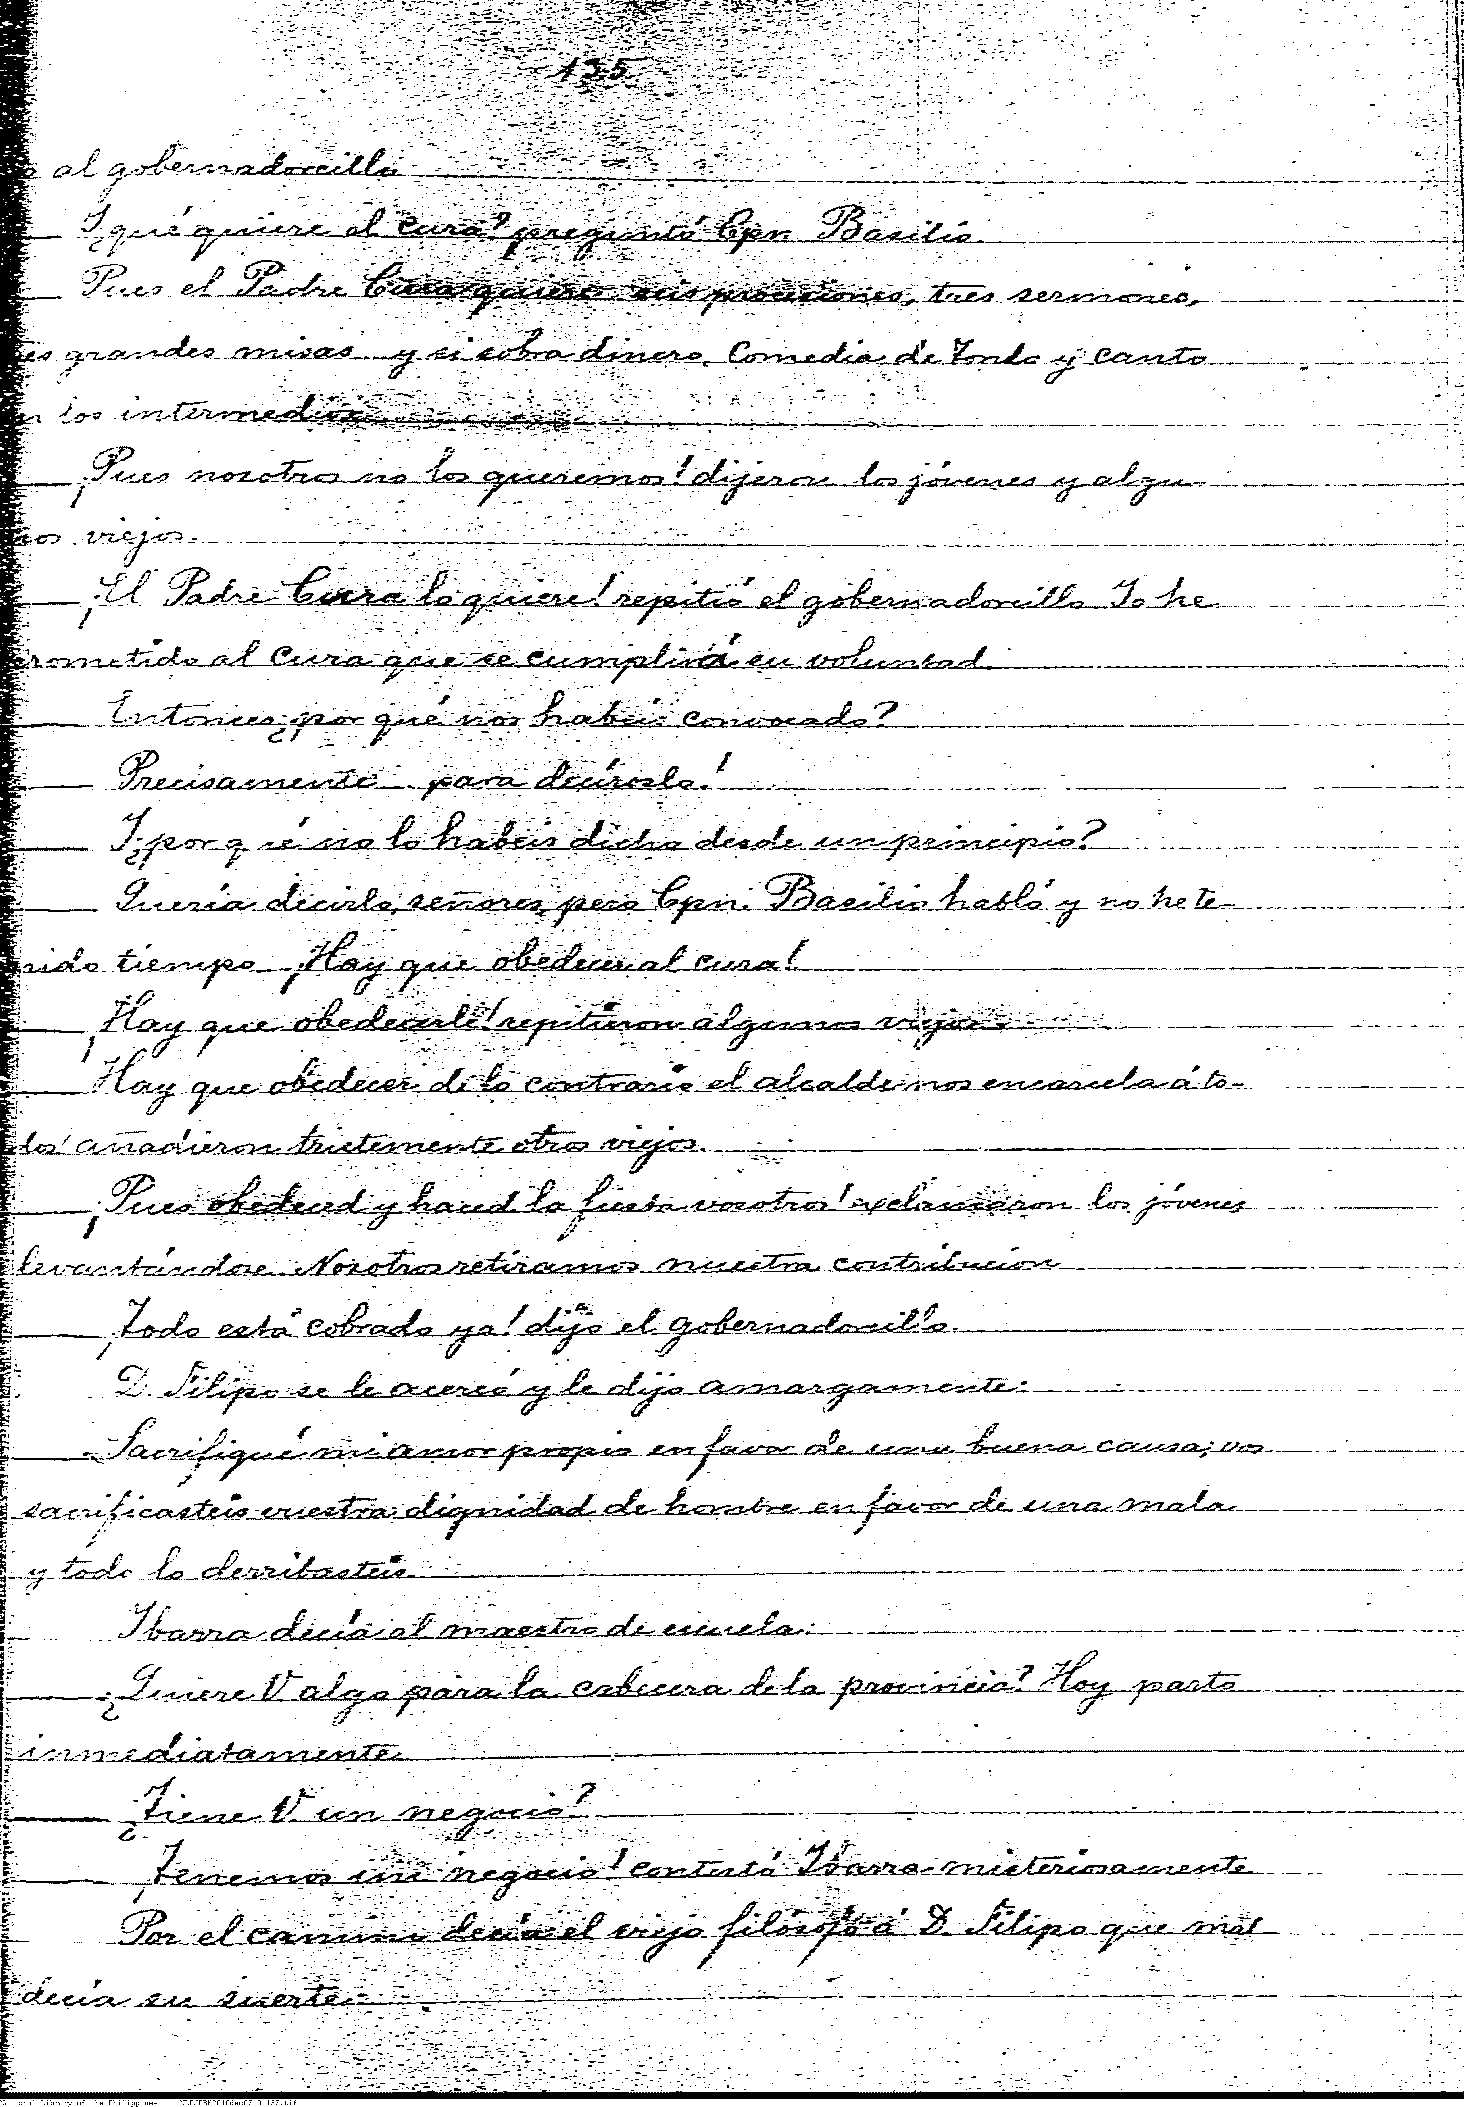 135
al gobernadorcillo
— Y ¿qué quiere el cura? preguntó Cpn Basilio.
— Pues el Padre Cura quiere seis procesiones, tres sermones,
es grandes misas y si sobra dinero, Comedia de Tondo y canto
n los intermedios
— ¡Pues nosotros no los queremos! dijeron los jóvenes y algu-
nos viejos.
— ¡El Padre Cura lo quiere! repitió el gobernadorcillo Yo he
rometido al cura que se cumplirá su voluntad.
— Entonces ¿por qué nos habeis convocado?
— Precisamente para decíroslo!
— Y ¿por qué no lo habeis dicho desde un principio?
— Quería decirlo, señores, pero Cpn. Basilio habló y no he te-
nido tiempo ¡Hay que obedecer al cura!
— ¡Hay que obedecerle! repitieron algunos viejos.
— Hay que obedecer de lo contrario el alcalde nos encarcela á to-
dos! añadieron tristemente otros viejos.
— ¡Pues obedeced y haced la fiesta vosotros! exclamaron los jóvenes
levantándose. Nosotros retiramos nuestra contribucion
— ¡Todo está cobrado ya! dijo el gobernadorcillo.
D. Filipo se le acercó y le dijo amargamente:
— Sacrifiqué mi amor propio en favor de una buena causa; vos
sacrificasteis vuestra dignidad de hombre en favor de una mala
y todo lo derribasteis.
Ibarra decía al maestro de escuela:
— ¿Quiere V algo para la cabecera de la provincia? Hoy parto
inmediatamente.
— ¿Tiene V. un negocio?
— ¡Tenemos un negocio! contestó Ibarra misteriosamente
Por el camino decía el viejo filósofo á D. Filipo que mal
decía su suerte: